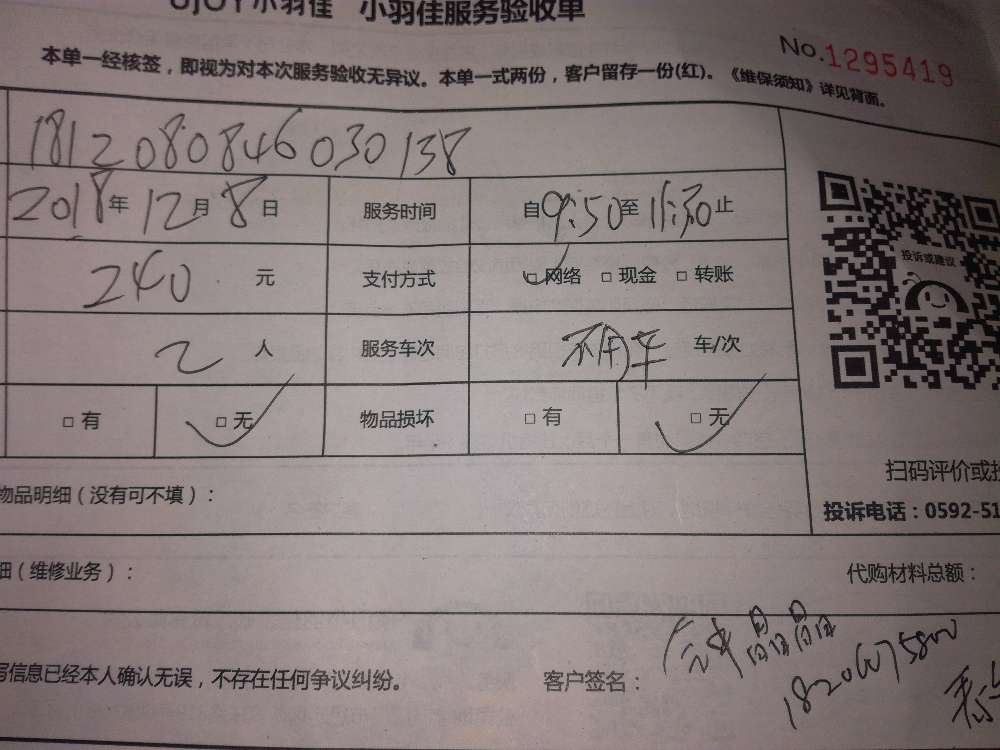 UJOY小羽佳 小羽佳服务验收单
No.1295419
本单一经核签，即视为对本次服务验收无异议。本单一式两份，客户留存一份(红)。《维保须知》详见背面。
1812080846030138
2018年12月8日 服务时间 自9:50至11:30止
240 元 支付方式 □网络 □现金 □转账
投诉或建议
2 人 服务车次 不用车 车/次
□有 □无 物品损坏 □有 □无
扫码评价或
物品明细（没有可不填）：
投诉电话：0592-51
细（维修业务）： 代购材料总额：
写信息已经本人确认无误，不存在任何争议纠纷。 客户签名：